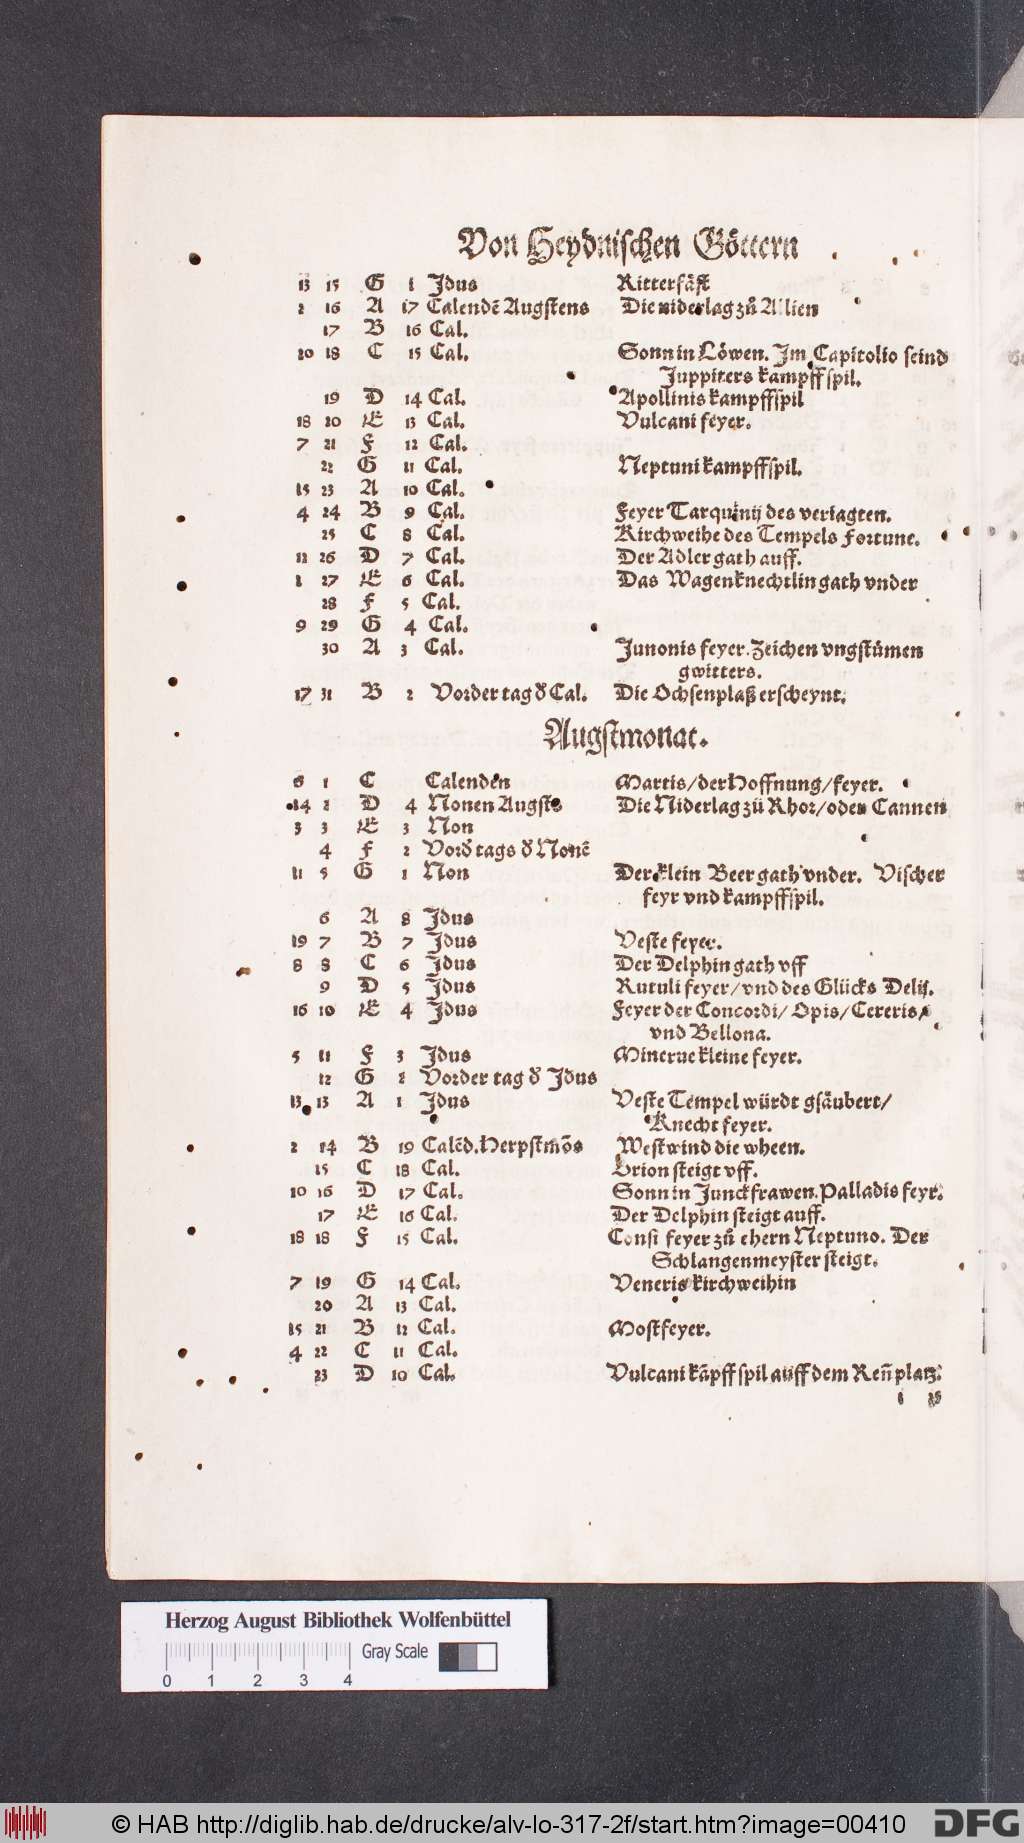 Von Heydnischen Göttern
13 15 G 1 Jdus Ritterfäst
2 16 A 17 Calendē Augstens Die niderlag zů Allien
17 B 16 Cal.
10 18 C 15 Cal. Sonn in Löwen. Im Capitolio seind
Juppiters kampffspil.
19 D 14 Cal. Apollinis kampffspil
18 20 E 13 Cal. Vulcani feyer.
7 21 F 12 Cal.
22 G 11 Cal. Neptuni kampffspil.
15 23 A 10 Cal.
4 24 B 9 Cal. Feyer Tarquinij des veriagten.
25 C 8 Cal. Kirchweihe des Tempels Fortune.
12 26 D 7 Cal. Der Adler gath auff.
1 27 E 6 Cal. Das Wagenknechtlin gath vnder
28 F 5 Cal.
9 29 G 4 Cal.
30 A 3 Cal. Junonis feyer. Zeichen vngstümen
gwitters.
17 31 B 2 Vorder tag d̕ Cal. Die Ochsenplaß erscheynt.
Augstmonat.
6 1 C Calenden Martis/der Hoffnung/feyer.
14 2 D 4 Nonen Augsts Die Niderlag zü Rhor/oder Cannen
3 3 E 3 Non
4 F 2 Vord̕ tags d̕ Nonē
11 5 G 1 Non Der klein Beer gath vnder. Vischer
feyr vnd kampffspil.
6 A 8 Jdus
19 7 B 7 Jdus Veste feyer.
8 8 C 6 Jdus Der Delphin gath vff
9 D 5 Jdus Rutuli feyer/vnd des Glücks Delij.
16 10 E 4 Jdus Feyer der Concordi/ Opis/Cereris/
vnd Bellona.
5 11 F 3 Jdus Minerue kleine feyer.
12 G 2 Vorder tag d̕ Jdus
13 13 A 1 Jdus Veste Tempel würdt gsäubert/
Knecht feyer.
2 14 B 19 Calēd. Herpstmōs Westwind die wheen.
15 C 18 Cal. Orion steigt vff.
10 16 D 17 Cal. Sonn in Junckfrawen. Palladis feyr.
17 E 16 Cal. Der Delphin steigt auff.
18 18 F 15 Cal. Consi feyer zů ehern Neptuno. Der
Schlangenmeyster steigt.
7 19 G 14 Cal. Veneris kirchweihin
20 A 13 Cal.
15 21 B 12 Cal. Mostfeyer.
4 22 C 11 Cal.
23 D 10 Cal. Vulcani kāpffspil auff dem Reñplatz.
Herzog August Bibliothek Wolfenbüttel
Gray Scale
0 1 2 3 4
© HAB http://diglib.hab.de/drucke/alv-lo-317-2f/start.htm?image=00410
DFG